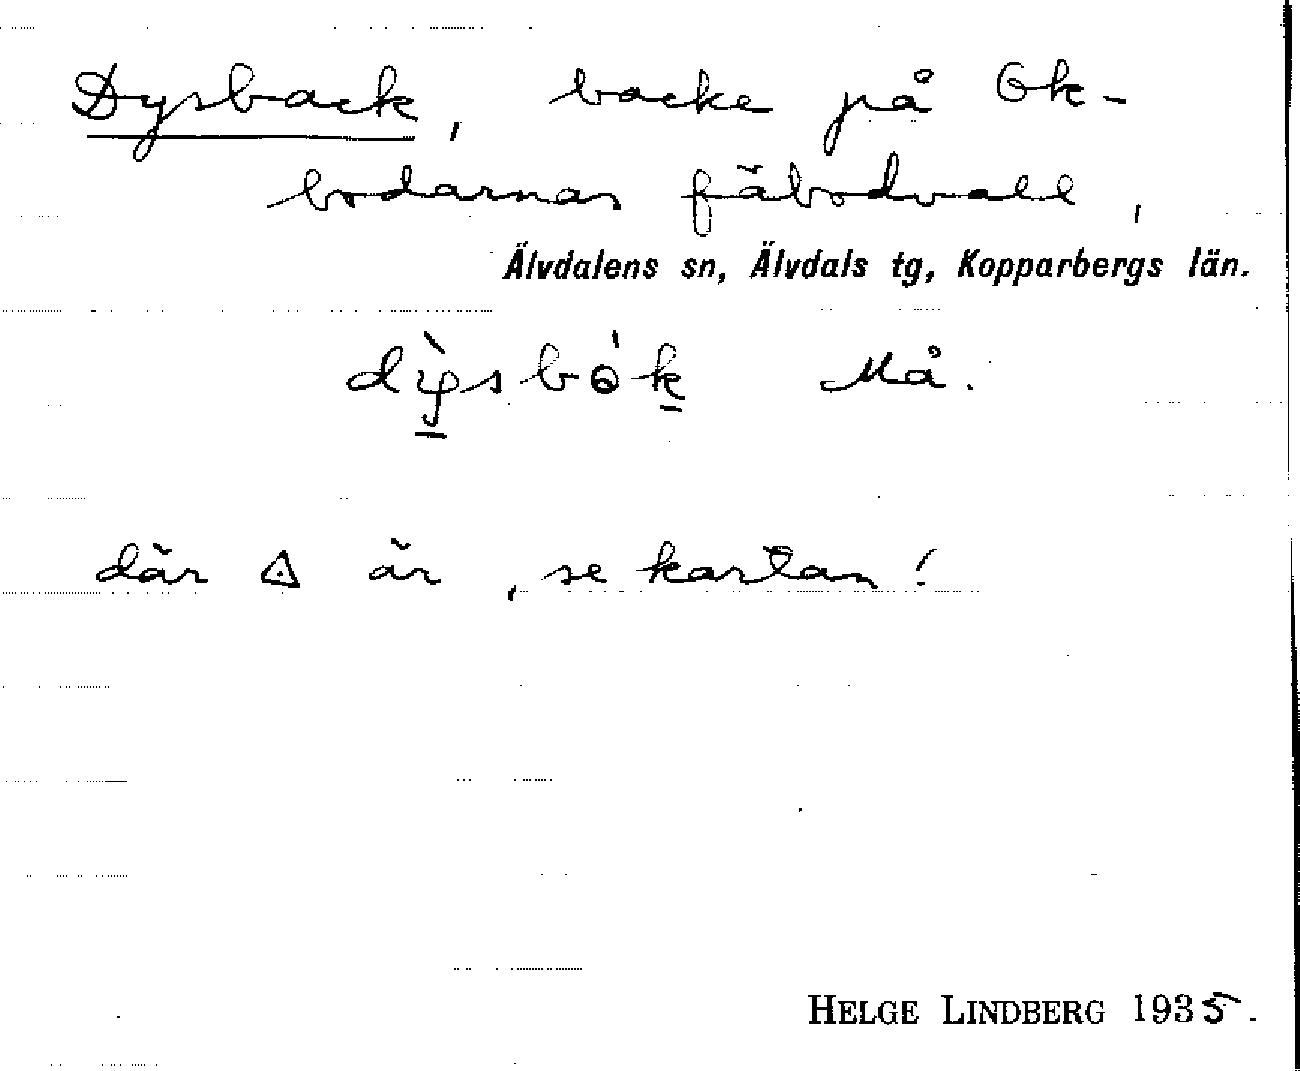 Dysback, backe på Ok-
bodarnas fäbodvall,
Älvdalens sn, Älvdals tg, Kopparbergs län.
Må.
där är, se kartan!
HELGE LINDBERG 1935.